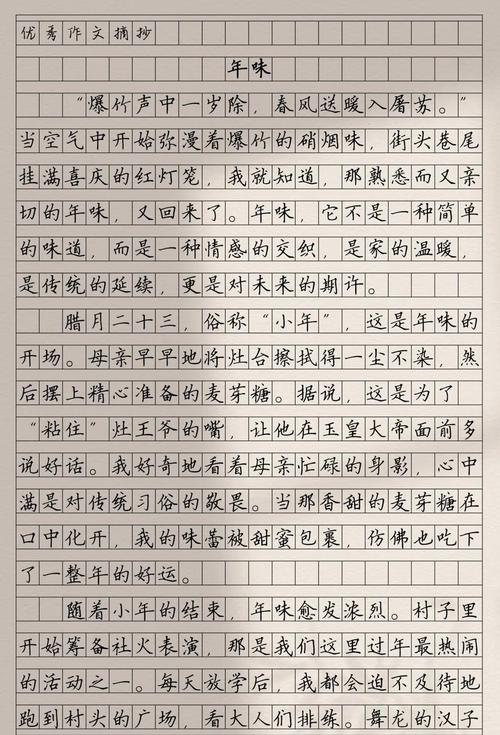 优秀作文摘抄
年味
“爆竹声中一岁除，春风送暖入屠苏。”
当空气中开始弥漫着爆竹的硝烟味，街头巷尾
挂满喜庆的红灯笼，我就知道，那熟悉而又亲
切的年味，又回来了。年味，它不是一种简单
的味道，而是一种情感的交织，是家的温暖，
是传统的延续，更是对未来的期许。
腊月二十三，俗称“小年”，这是年味的
开场。母亲早早地将灶台擦拭得一尘不染，然
后摆上精心准备的麦芽糖。据说，这是为了
“粘住”灶王爷的嘴，让他在玉皇大帝面前多
说好话。我好奇地看着母亲忙碌的身影，心中
满是对传统习俗的敬畏。当那香甜的麦芽糖在
口中化开，我的味蕾被甜蜜包裹，仿佛也吃下
了一整年的好运。
随着小年的结束，年味愈发浓烈。村子里
开始筹备社火表演，那是我们这里过年最热闹
的活动之一。每天放学后，我都会迫不及待地
跑到村头的广场，看大人们排练。舞龙的汉子